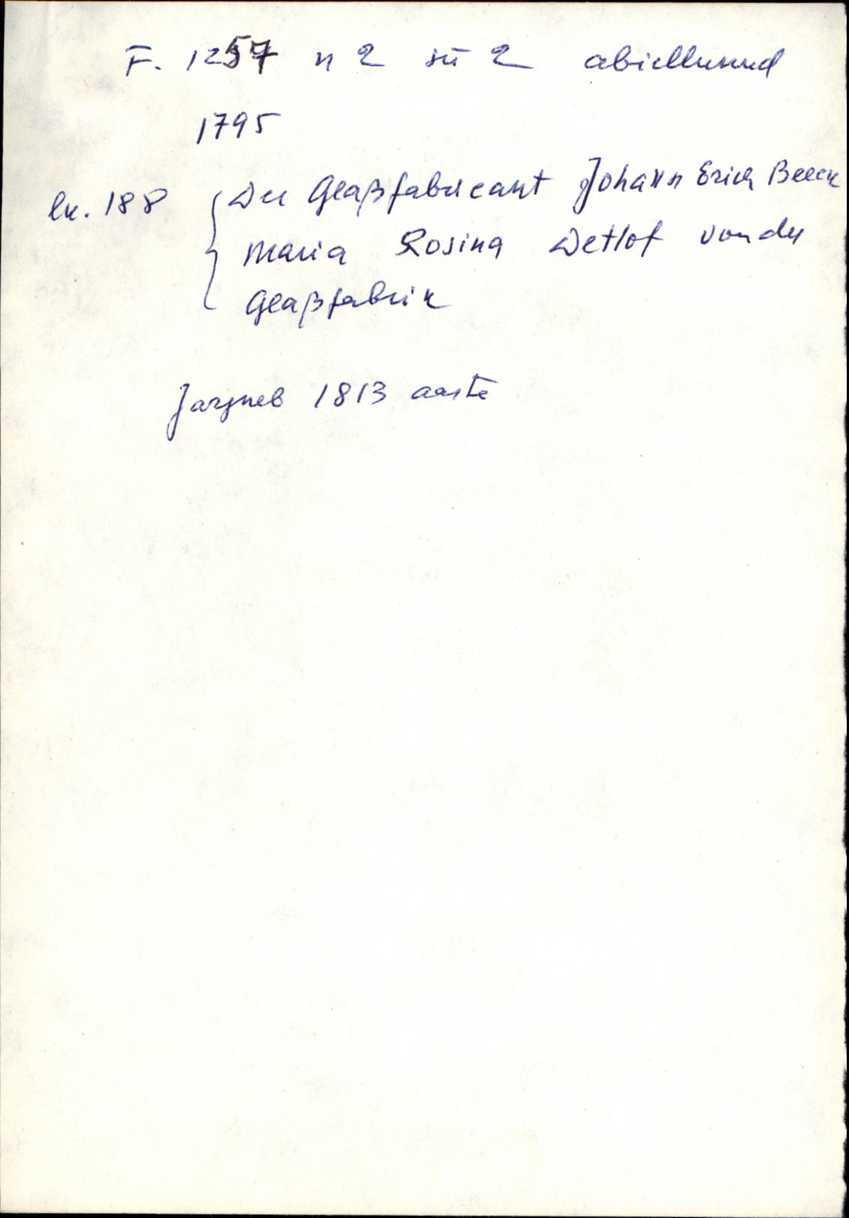 F. 1257 n 2 sü 2 abiellunud
1795
lk. 188 { Der Glaßfabricant Johann Erich Beeck
Maria Rosina Detlof von der
Glaßfabrik
Järgneb 1813 aasta